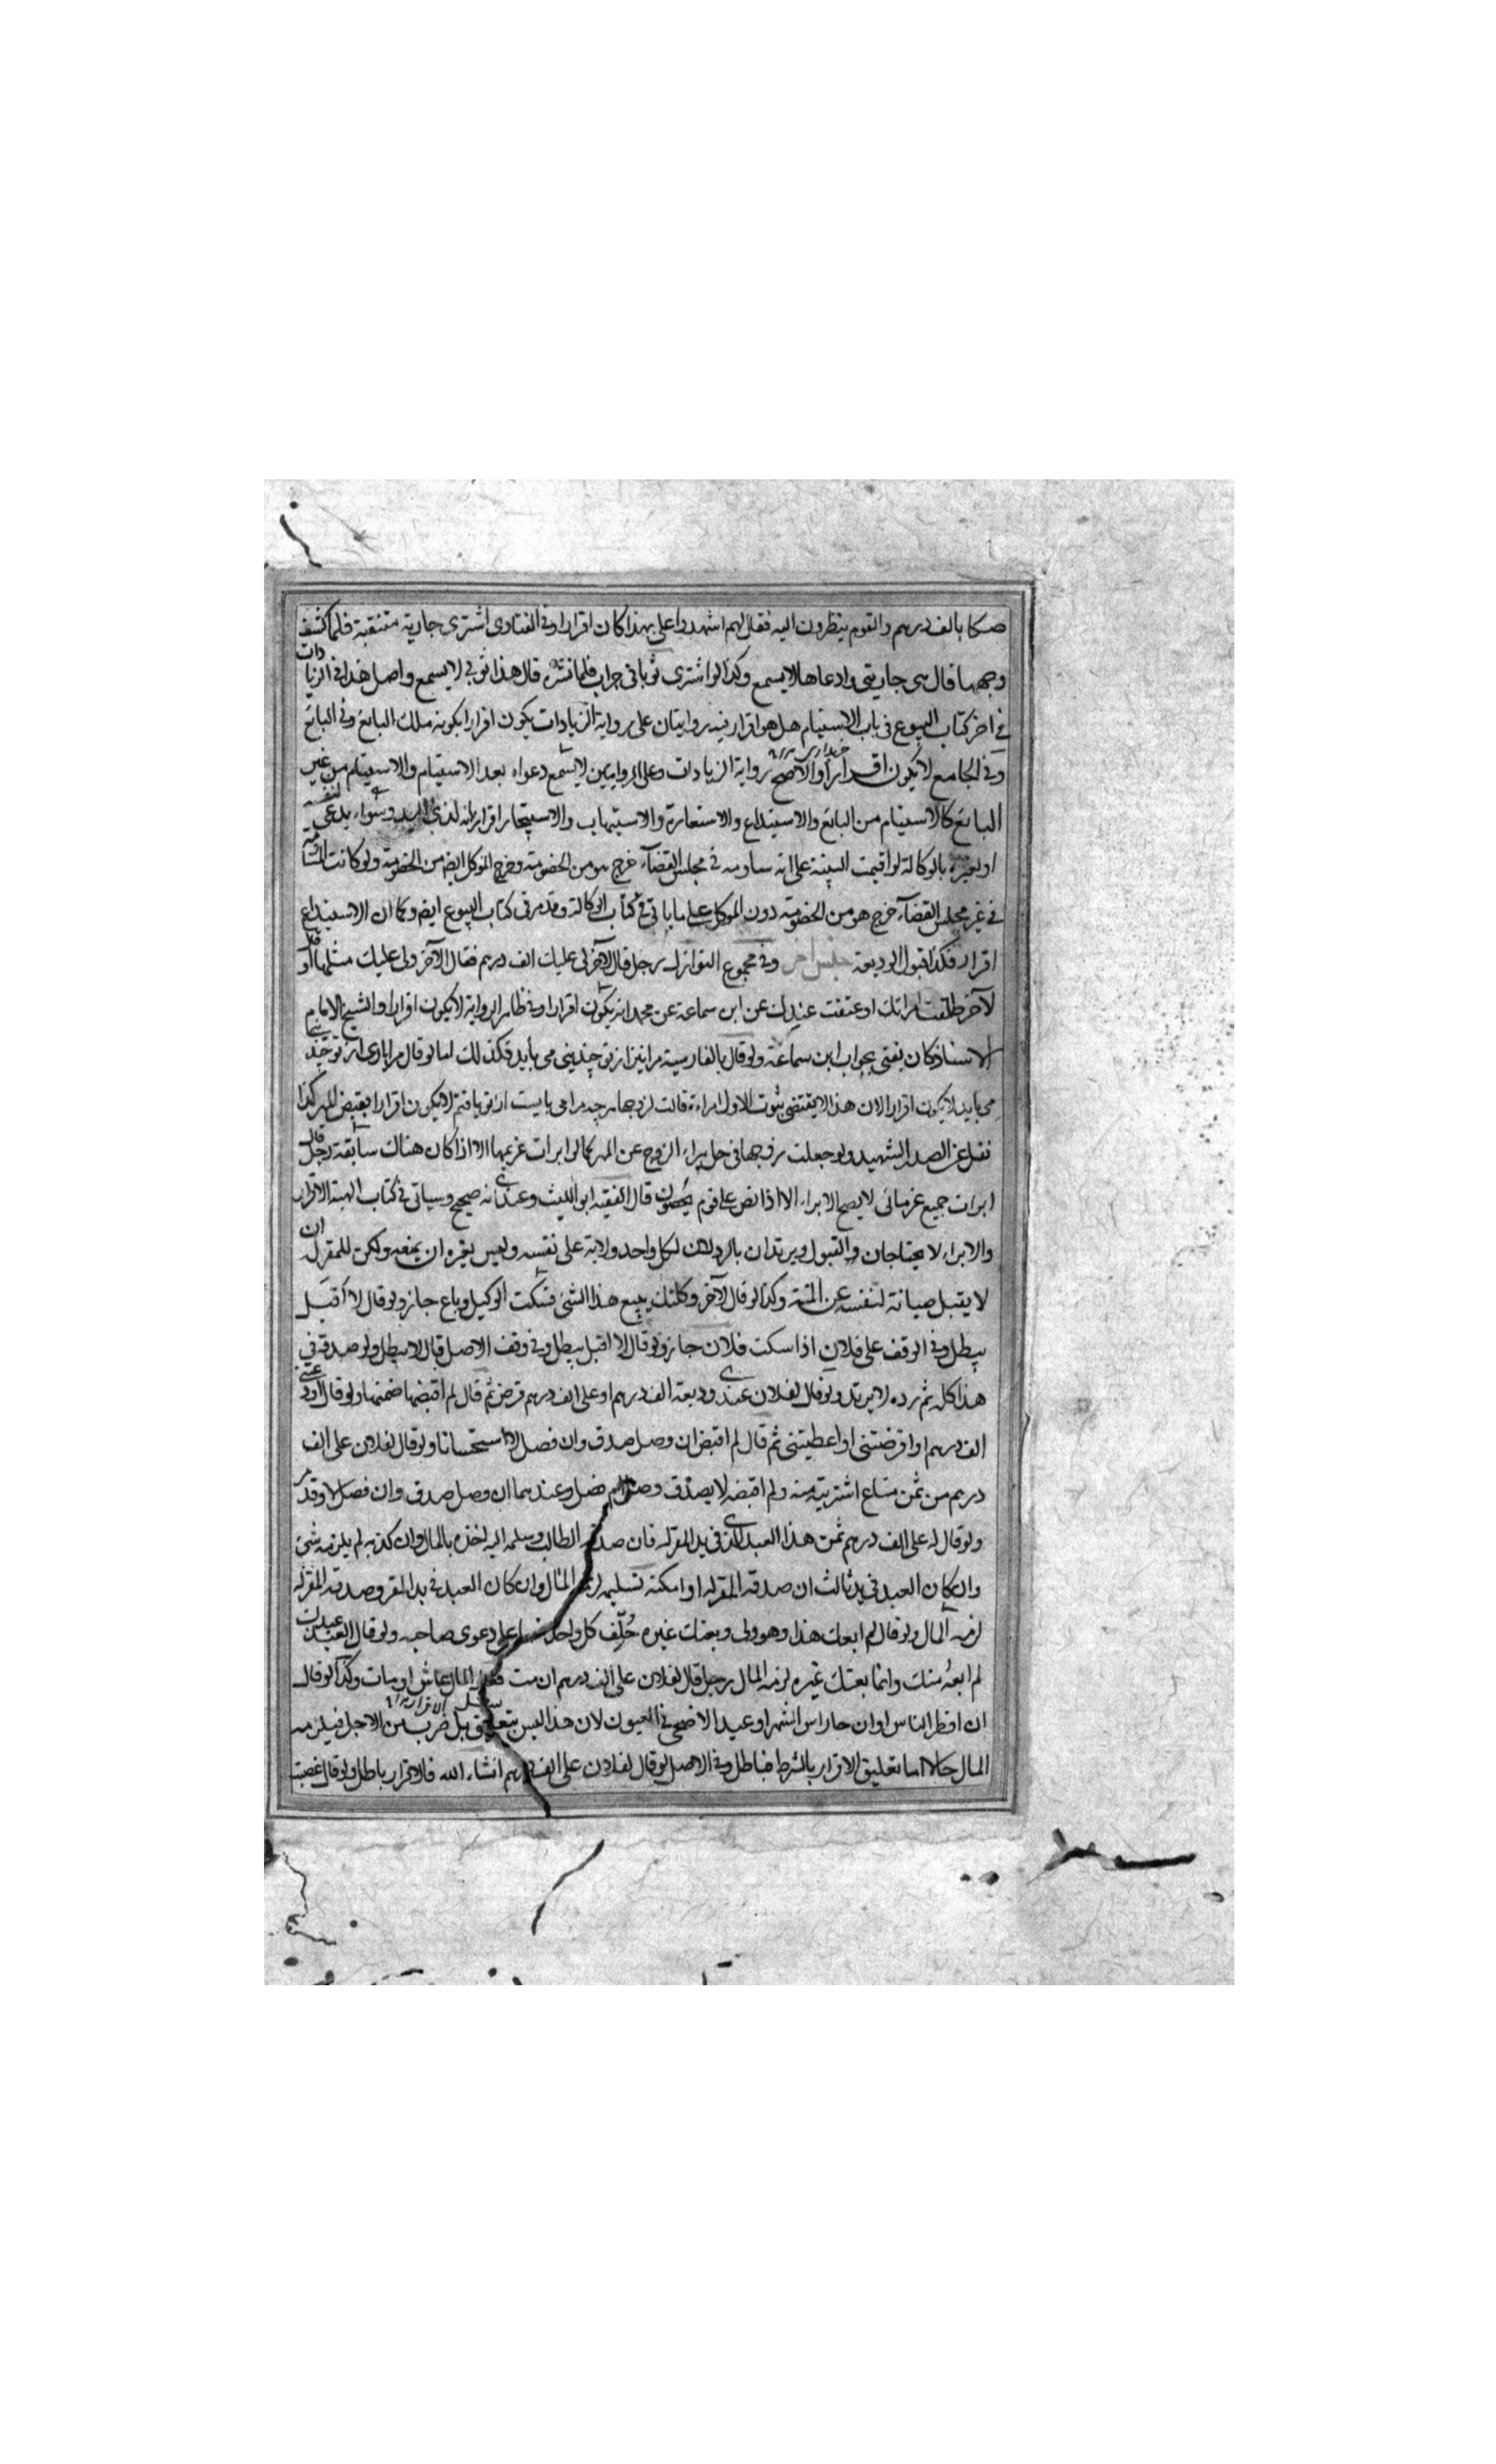 صكا بالف درهم والقوم ينظرون اليه فقال لهم اشهدوا على بهذا كان اقرارا وفى الفتاوى اشترى جارية متنقبة فلما كشف
وجهها قال هى جاريتى وادعاها لا يسمع وكذا لو اشترى ثوبا فى جراب فلما نشره قال هذا ثوبى لا يسمع واصل هذا فى الزيادات
فى اخر كتاب البيوع فى باب الاستيام هل هو اقرار فيه روايتان على رواية الزيادات يكون اقرارا بكونه ملك البائع وفى البائع
وفى الجامع لا يكون اقرارا والاصح رواية الزيادات وعلى الروايتين لا يسمع دعواه بعد الاستيام والاستيام من غير
البائع كالاستيام من البائع والاستيداع والاستعارة والاستيهاب والاستيجار اقرار بانه لذى اليد وسواء يدعى لنفسه
او لغيره بالوكالة لو اقيمت البينة على انه ساومه فى مجلس القضاء خرج هو من الخصومة وخرج الموكل ايضا من الخصومة ولو كانت المساومة
فى غير مجلس القضاء خرج هو من الخصومة دون الموكل على ما ياتى فى كتاب الوكالة وقد مر فى كتاب البيوع ايضا وكما ان الاستيداع
اقرار فكذا قبول الوديعة جنس اخر وفى مجموع النوازل رجل قال لآخر لى عليك الف درهم فقال الآخر ولى عليك مثلها او قال
لآخر طلقت امراتك او عتقت عبدك عن ابن سماعة عن محمد انه يكون اقرارا وفى ظاهر الرواية لا يكون اقرارا والشيخ الامام
الاستاذ كان يفتى بجواب ابن سماعة ولو قال بالفارسية مرا نيز از تو چندينى مى بايد فكذلك اما لو قال مرا بارى از تو چندينى
مى بايد لا يكون اقرارا لان هذا لا يقتضى ثبوت الاول امراءة قالت لزوجها هر چه مرا مى بايست از تو يافتم لا يكون اقرارا بقبض المهر كذا
نقل عن الصدر الشهيد ولو جعلت زوجها فى حل يبراء الزوج عن المهر كما لو ابرات غريمها الا اذا كان هناك سابقة رجل قال
ابرات جميع غرمائى لا يصح الابراء الا اذا نص على قوم يحصون قال الفقيه ابو الليث وعندى انه صحيح وسياتى فى كتاب الهبة الاقرار
والابراء لا يحتاجان والقبول ويرتدان بالرد لان لكل واحد ولاية على نفسه وليس لغيره ان يمنعه ولكن للمقر له ان
لا يقبل صيانة لنفسه عن المنة وكذا لو قال لآخر وكلتك ببيع هذا الشئ فسكت الوكيل وباع جاز ولو قال لا اقبل
يبطل وفى الوقف على فلان اذا سكت فلان جاز ولو قال لا اقبل يبطل وفى وقف الاصل قال لا يبطل ولو صدقه فى
هذا كله ثم رده لا يرتد ولو قال لفلان عندى وديعة الف درهم او على الف درهم قرض ثم قال لم اقبضها ضمنها ولو قال اودعتنى
الف درهم او اقرضتنى او اعطيتنى ثم قال لم اقبض ان وصل صدق وان فصل لا استحسانا ولو قال لفلان على الف
درهم من ثمن متاع اشتريته منه ولم اقبضه لا يصدق وصل ام فصل وعندهما ان وصل صدق وان فصل لا وقد مر
ولو قال له على الف درهم ثمن هذا العبد الذى فى يد المقر له فان صدقه الطالب وسلمه اليه اخذه بالمال وان كذبه لم يلزمه شئ
وان كان العبد فى يد ثالث ان صدقه المقر له او امكنه تسليمه لزمه المال وان كان العبد فى يد المقر وصدقه المقر له
لزمه المال ولو قال لم ابعك هذا وهو ولى وبعتك غيره حلف كل واحد منهما على دعوى صاحبه ولو قال العبد عبدك
لم ابعه منك وانما بعتك غيره لزمه المال رجل قال لفلان على الف درهم ان مت فعليه المال عاش او مات وكذا لو قال
ان افطر الناس او ان جاء راس الشهر او عيد الاضحى فى العيون لان هذا ليس بتعليق بل ضرب من الاجل فيلزمه
المال حالا اما تعليق الاقرار بالشرط فباطل وفى الاصل لو قال لفلان على الف درهم انشاء الله فالاقرار باطل ولو قال غصبت